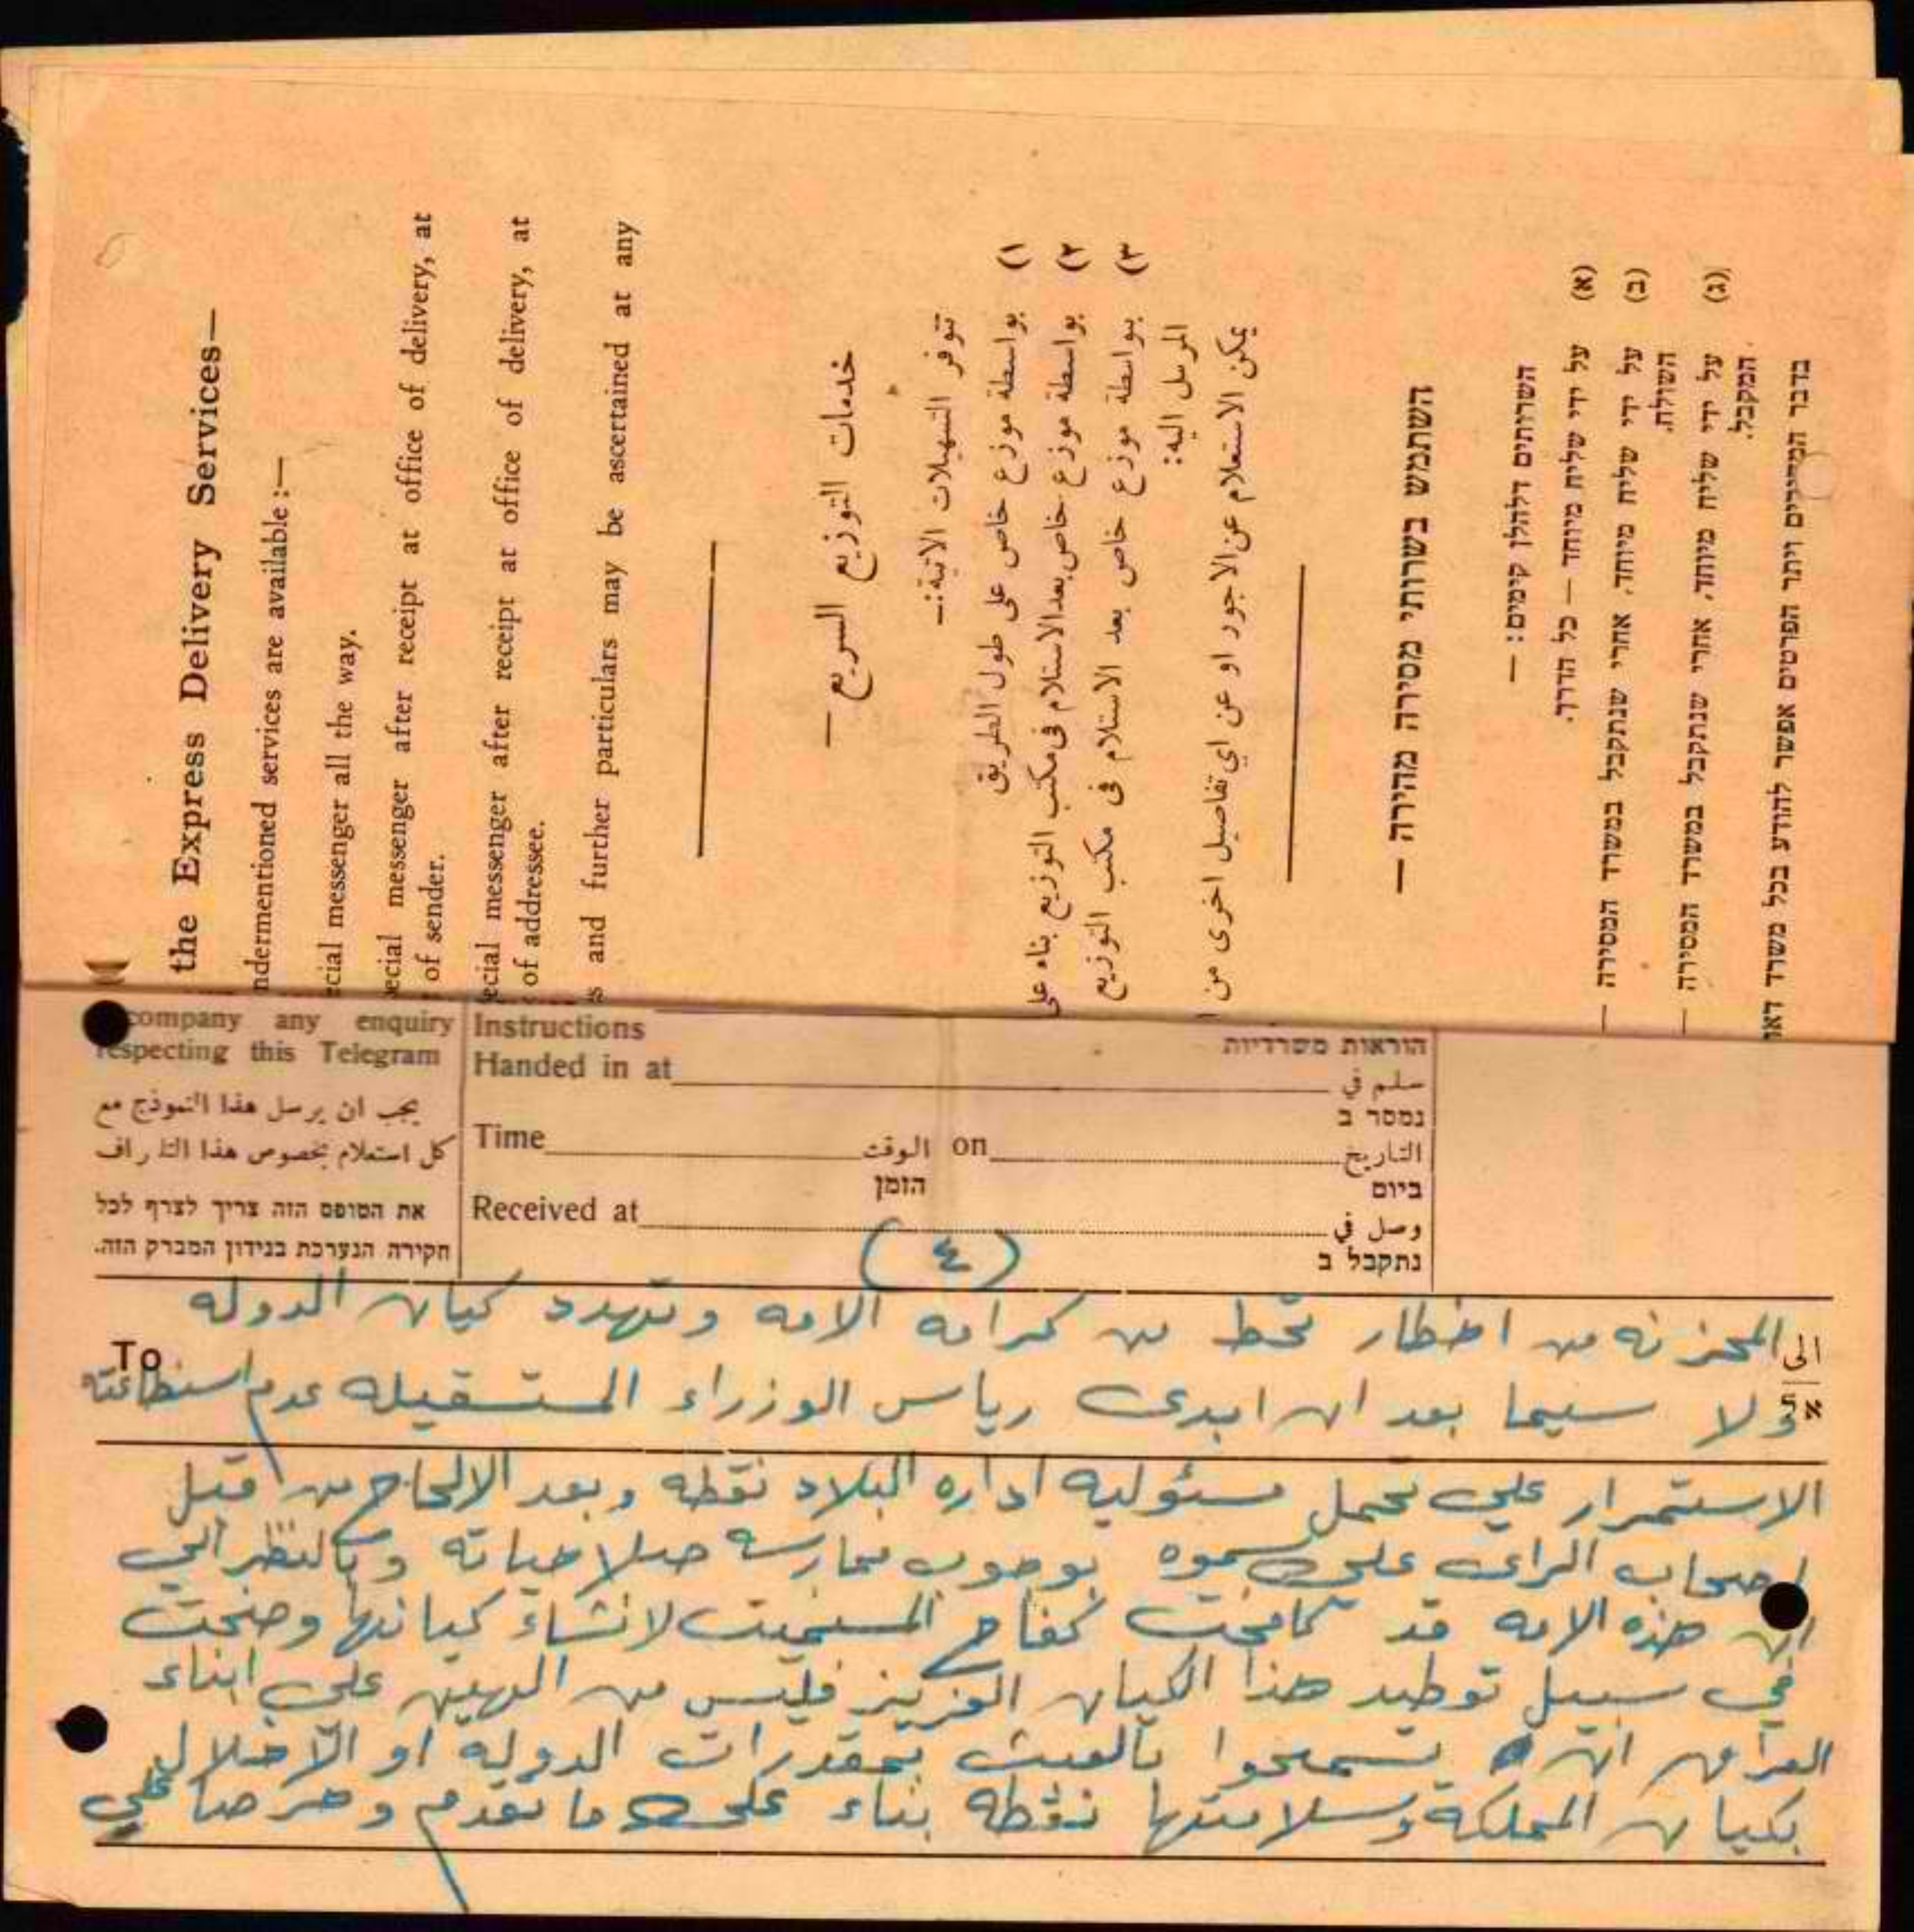 the Express Delivery Services—
ndermentioned services are available :—
cial messenger all the way.
ecial messenger after receipt at office of delivery, at
of sender.
ecial messenger after receipt at office of delivery, at
of addressee.
s and further particulars may be ascertained at any
خدمات التوزيع السريع —
تتوفر التسهيلات الاتية:—
١) بواسطة موزع خاص على طول الطريق
٢) بواسطة موزع خاص بعد الاستلام في مكتب التوزيع بناء على
٣) بواسطة موزع خاص بعد الاستلام في مكتب التوزيع
المرسل اليه:
يمكن الاستعلام عن الاجور او عن اي تفاصيل اخرى من
השתמש בשרותי מסירה מהירה —
השרותים דלהלן קיימים: —
(א) על ידי שליח מיוחד — כל הדרך.
(ב) על ידי שליח מיוחד, אחרי שנתקבל במשרד המסירה —
השולח.
(ג) על ידי שליח מיוחד, אחרי שנתקבל במשרד המסירה —
המקבל.
בדבר המחירים ויתר הפרטים אפשר להודע בכל משרד דאר
company any enquiry
respecting this Telegram
يجب ان يرسل هذا النموذج مع
كل استعلام بخصوص هذا التلغراف
את הטופס הזה צריך לצרף לכל
חקירה הנערכת בנידון המברק הזה.
Instructions הוראות משרדיות
Handed in at سلم في
נמסר ב
Time الوقت on التاريخ
הזמן ביום
Received at وصل في
נתקבל ב
(٤)
To الى
אל
المحزنه من اخطار تحط من كرامه الامه وتهدد كيان الدوله
ولا سيما بعد ان ابدى رياس الوزراء المستقيله عدم استطاعته
الاستمرار على تحمل مسئوليه اداره البلاد نقطه وبعد الالحاح من قبل
اصحاب الراى على سموه بوجوب ممارسه صلاحياته وبالنظر الى
ان هذه الامه قد كافحت كفاح المستميت لانشاء كيانها وضحت
في سبيل توطيد هذا الكيان العزيز فليس من الهين على ابناء
العراق ان يسمحوا بالعبث بمقدرات الدوله او الاخلال
بكيان المملكة وسلامتها نقطه بناء على ما تقدم وحرصا على